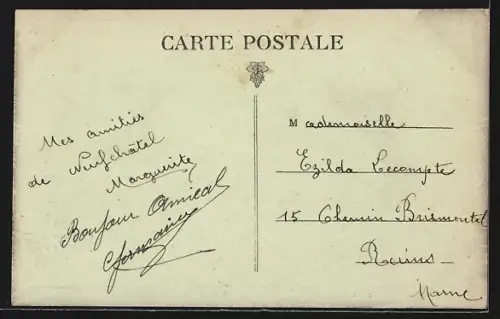 CARTE POSTALE
Mes amitiés
de Neufchâtel
Marguerite
Bonjour Amical
Germaine
Mademoiselle
Ezilda Lecompte
15 Chemin Brismontel
Reims
Marne